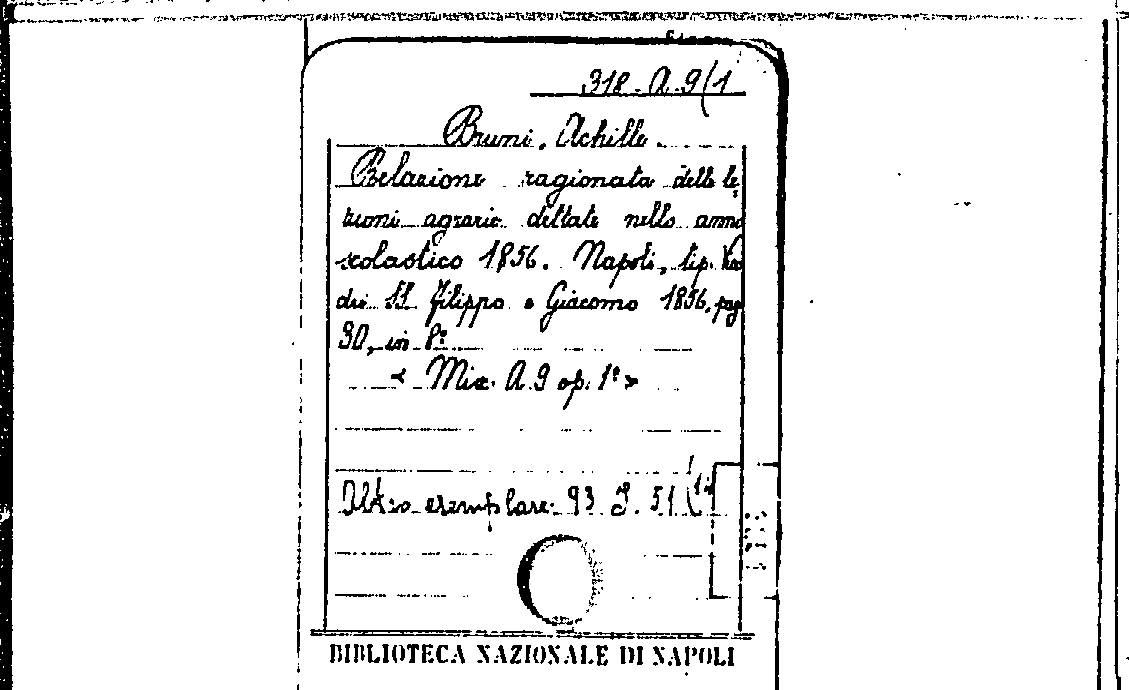 318. A. 9(1
Bruni, Achille.
Relazione ragionata delle le
zioni agrarie dettate nello anno
scolastico 1856. Napoli, tip.
dei SS. Filippo e Giacomo 1856, pag
30, in 8º
< Misc. A. 9 op. 1º >
Altro esemplare 93 J. 51 (14
BIBLIOTECA NAZIONALE DI NAPOLI